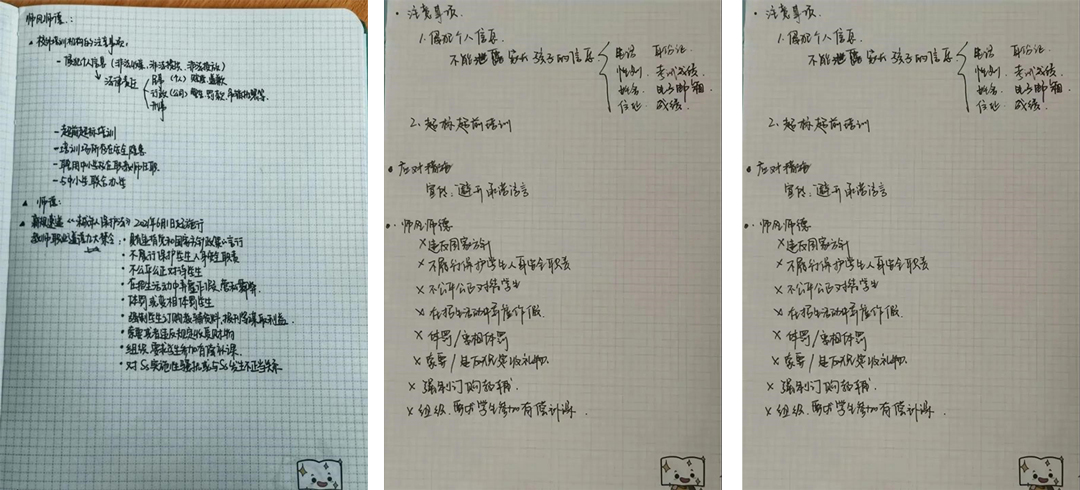 师风师德：
教师培训机构的注意事项：
- 侵犯个人信息（非法收集、非法提供、非法
法律责任
民事（个人）赔偿 道歉
行政（公司）警告 罚款 吊销执照等
刑事
- 超前超标培训
- 培训场所存在安全隐患
- 聘用中小学在职教师任职
- 与中小学联合办学
师德：
《未成年人保护法》2021年6月1日起施行
教师职业道德九大禁令：
· 有违背党和国家方针政策的言行
· 不履行保护学生人身安全职责
· 不公平公正对待学生
· 在招生活动中弄虚作假、营私舞弊
· 体罚或变相体罚学生
· 强制学生订购教辅资料，报刊等谋取利益
· 索要或者违反规定收受财物
· 组织、要求学生参加有偿补课
· 对Ss实施性骚扰或与Ss发生不正当关系
· 注意事项
1. 侵犯个人信息
不能泄露家长孩子的信息
电话 身份证
性别 考试成绩
姓名 电子邮箱
住址 成绩
2. 超标超前培训
· 应对措施
宣传：避开承诺语言
· 师风师德
× 违反国家方针
× 不履行保护学生人身安全职责
× 不公平公正对待学生
× 在招生活动中弄虚作假
× 体罚/变相体罚
× 索要/违反规定收礼物
× 强制订购教辅
× 组织、要求学生参加有偿补课
· 注意事项
1. 侵犯个人信息
不能泄露家长孩子的信息
电话 身份证
性别 考试成绩
姓名 电子邮箱
住址 成绩
2. 超标超前培训
· 应对措施
宣传：避开承诺语言
· 师风师德
× 违反国家方针
× 不履行保护学生人身安全职责
× 不公平公正对待学生
× 在招生活动中弄虚作假
× 体罚/变相体罚
× 索要/违反规定收礼物
× 强制订购教辅
× 组织、要求学生参加有偿补课